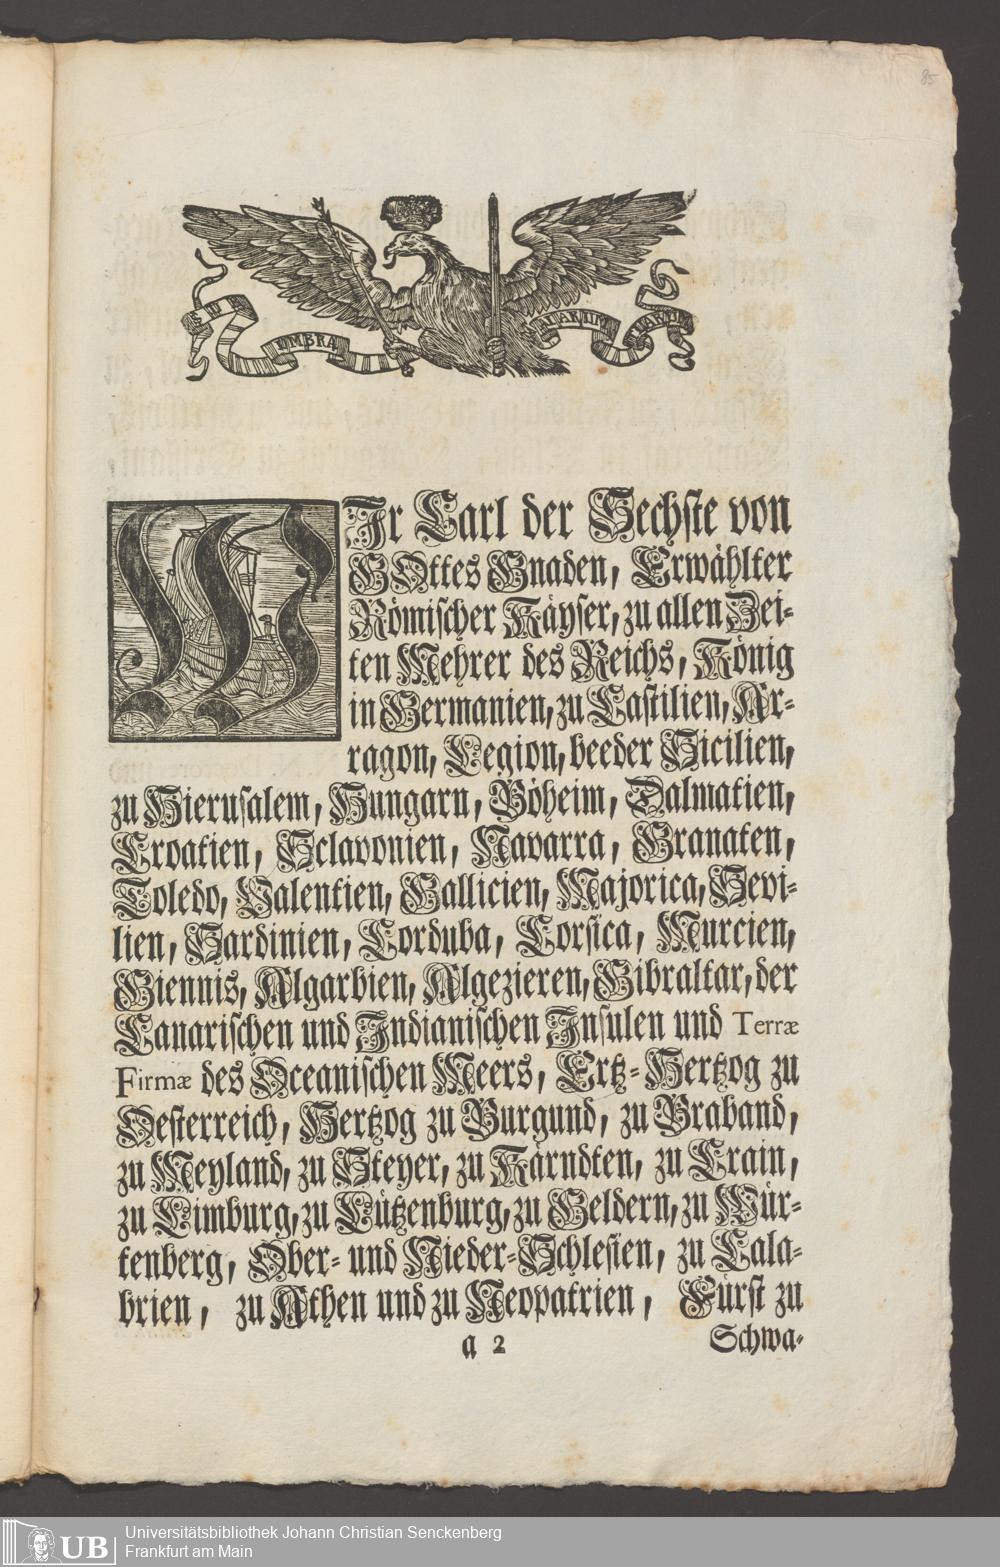 85
SUB
UMBRA
ALARUM
TUARUM
WJr Carl der Sechste von
GOttes Gnaden, Erwählter
Römischer Käyser, zu allen Zei-
ten Mehrer des Reichs, König
in Germanien, zu Castilien, Ar-
ragon, Legion, beeder Sicilien,
zu Hierusalem, Hungarn, Böheim, Dalmatien,
Croatien, Sclavonien, Navarra, Granaten,
Toledo, Valentien, Gallicien, Majorica, Sevi-
lien, Sardinien, Corduba, Corsica, Murcien,
Giennis, Algarbien, Algezieren, Gibraltar, der
Canarischen und Jndianischen Jnsulen und Terræ
Firmæ des Oceanischen Meers, Ertz-Hertzog zu
Oesterreich, Hertzog zu Burgund, zu Braband,
zu Meyland, zu Steyer, zu Kärndten, zu Crain,
zu Limburg, zu Lützenburg, zu Geldern, zu Wür-
tenberg, Ober- und Nieder-Schlesien, zu Cala-
brien, zu Athen und zu Neopatrien, Fürst zu
a 2 Schwa-
UB Universitätsbibliothek Johann Christian Senckenberg
Frankfurt am Main